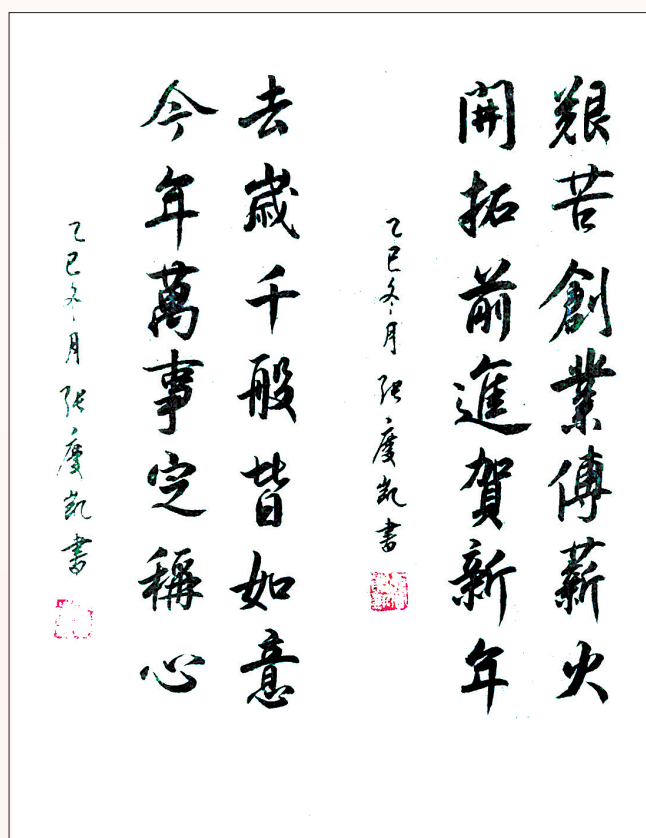 艱苦創業傳薪火
開拓前進賀新年
乙巳冬月 張慶凱書
去歲千般皆如意
今年萬事定稱心
乙巳冬月 張慶凱書